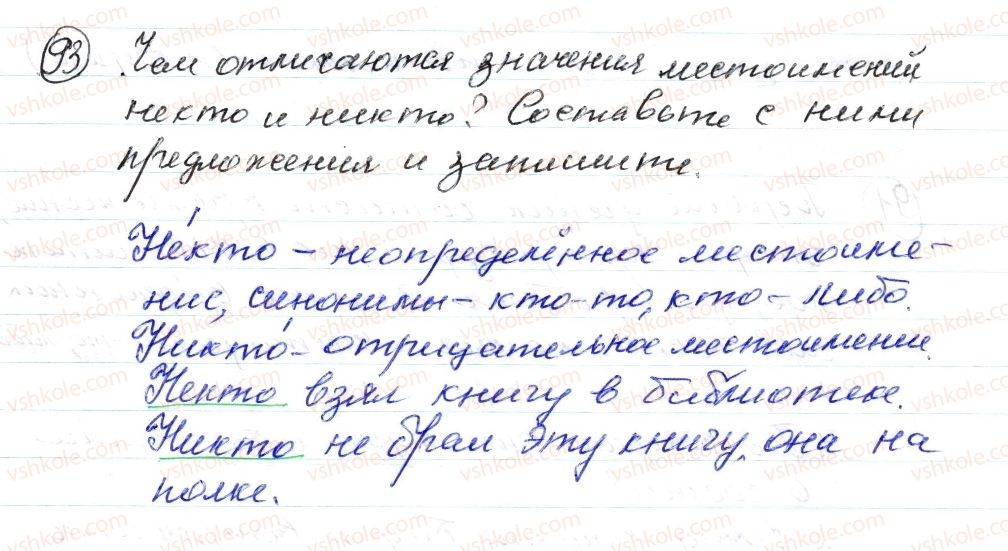 93 Чем отличаются значения местоимений
некто и никто? Составьте с ними
предложения и запишите.
Не́кто – неопределённое местоиме-
ние, синонимы – кто-то, кто-либо.
Никто́ – отрицательное местоимение.
Некто взял книгу в библиотеке.
Никто не брал эту книгу, она на
полке.